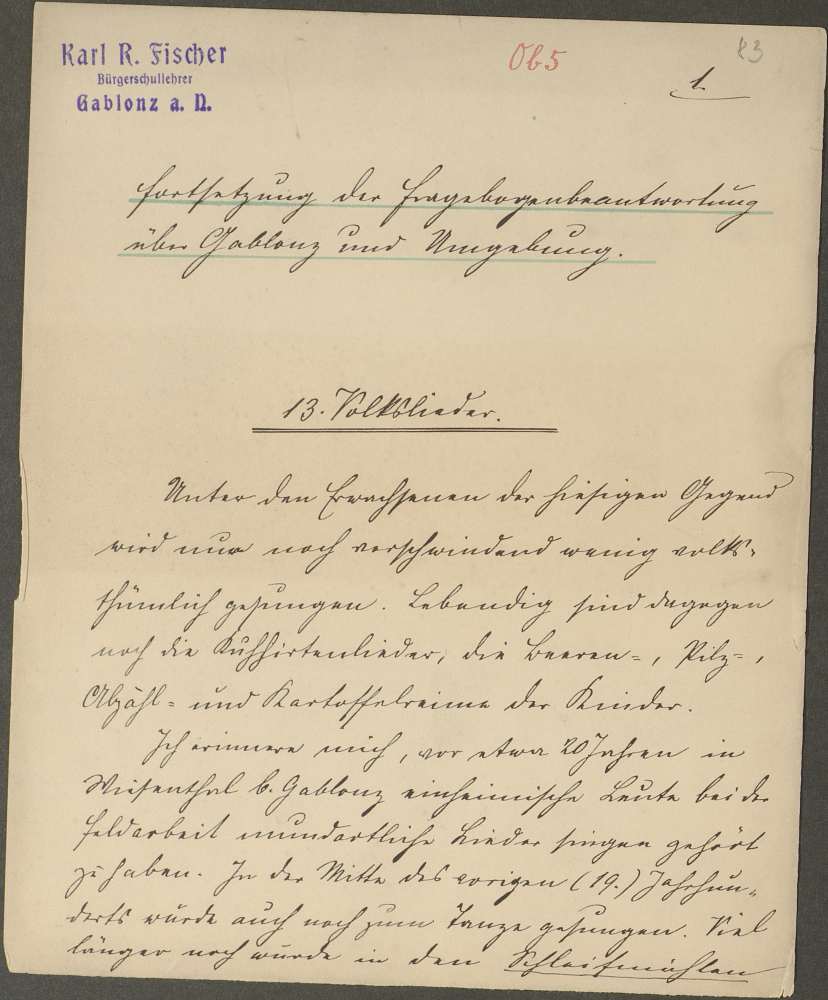 Karl R. Fischer
Bürgerschullehrer
Gablonz a. N.
Ob5
83
1.
Fortsetzung der Fragebogenbeantwortung
über Gablonz und Umgebung.
13. Volkslieder.
Unter den Erwachsenen der hiesigen Gegend
wird nur noch verschwindend wenig volks-
thümlich gesungen. Lebendig sind dagegen
noch die Kuhhirtenlieder, die Beeren-, Pilz-,
Abzähl- und Kartoffelreime der Kinder.
Ich erinnere mich, vor etwa 20 Jahren in
Wiesenthal b. Gablonz einheimische Leute bei der
Feldarbeit mundartliche Lieder singen gehört
zu haben. In der Mitte des vorigen (19.) Jahrhun-
derts wurde auch noch zum Tanze gesungen. Viel
länger noch wurde in den Schleifmühlen